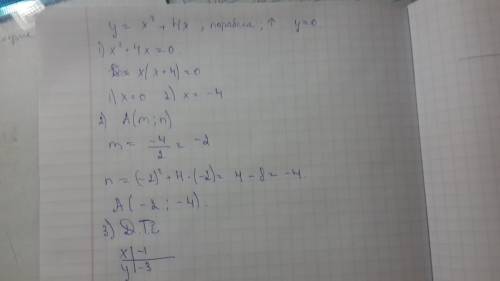 y = x² + 4x, парабола, ↑ y=0
1) x² + 4x = 0
D = x(x+4) = 0
1) x = 0 2) x = -4
2) A(m; n)
m = -4/2 = -2
n = (-2)² + 4·(-2) = 4 - 8 = -4.
A(-2; -4).
3) D.T.
x | -1
y | -3